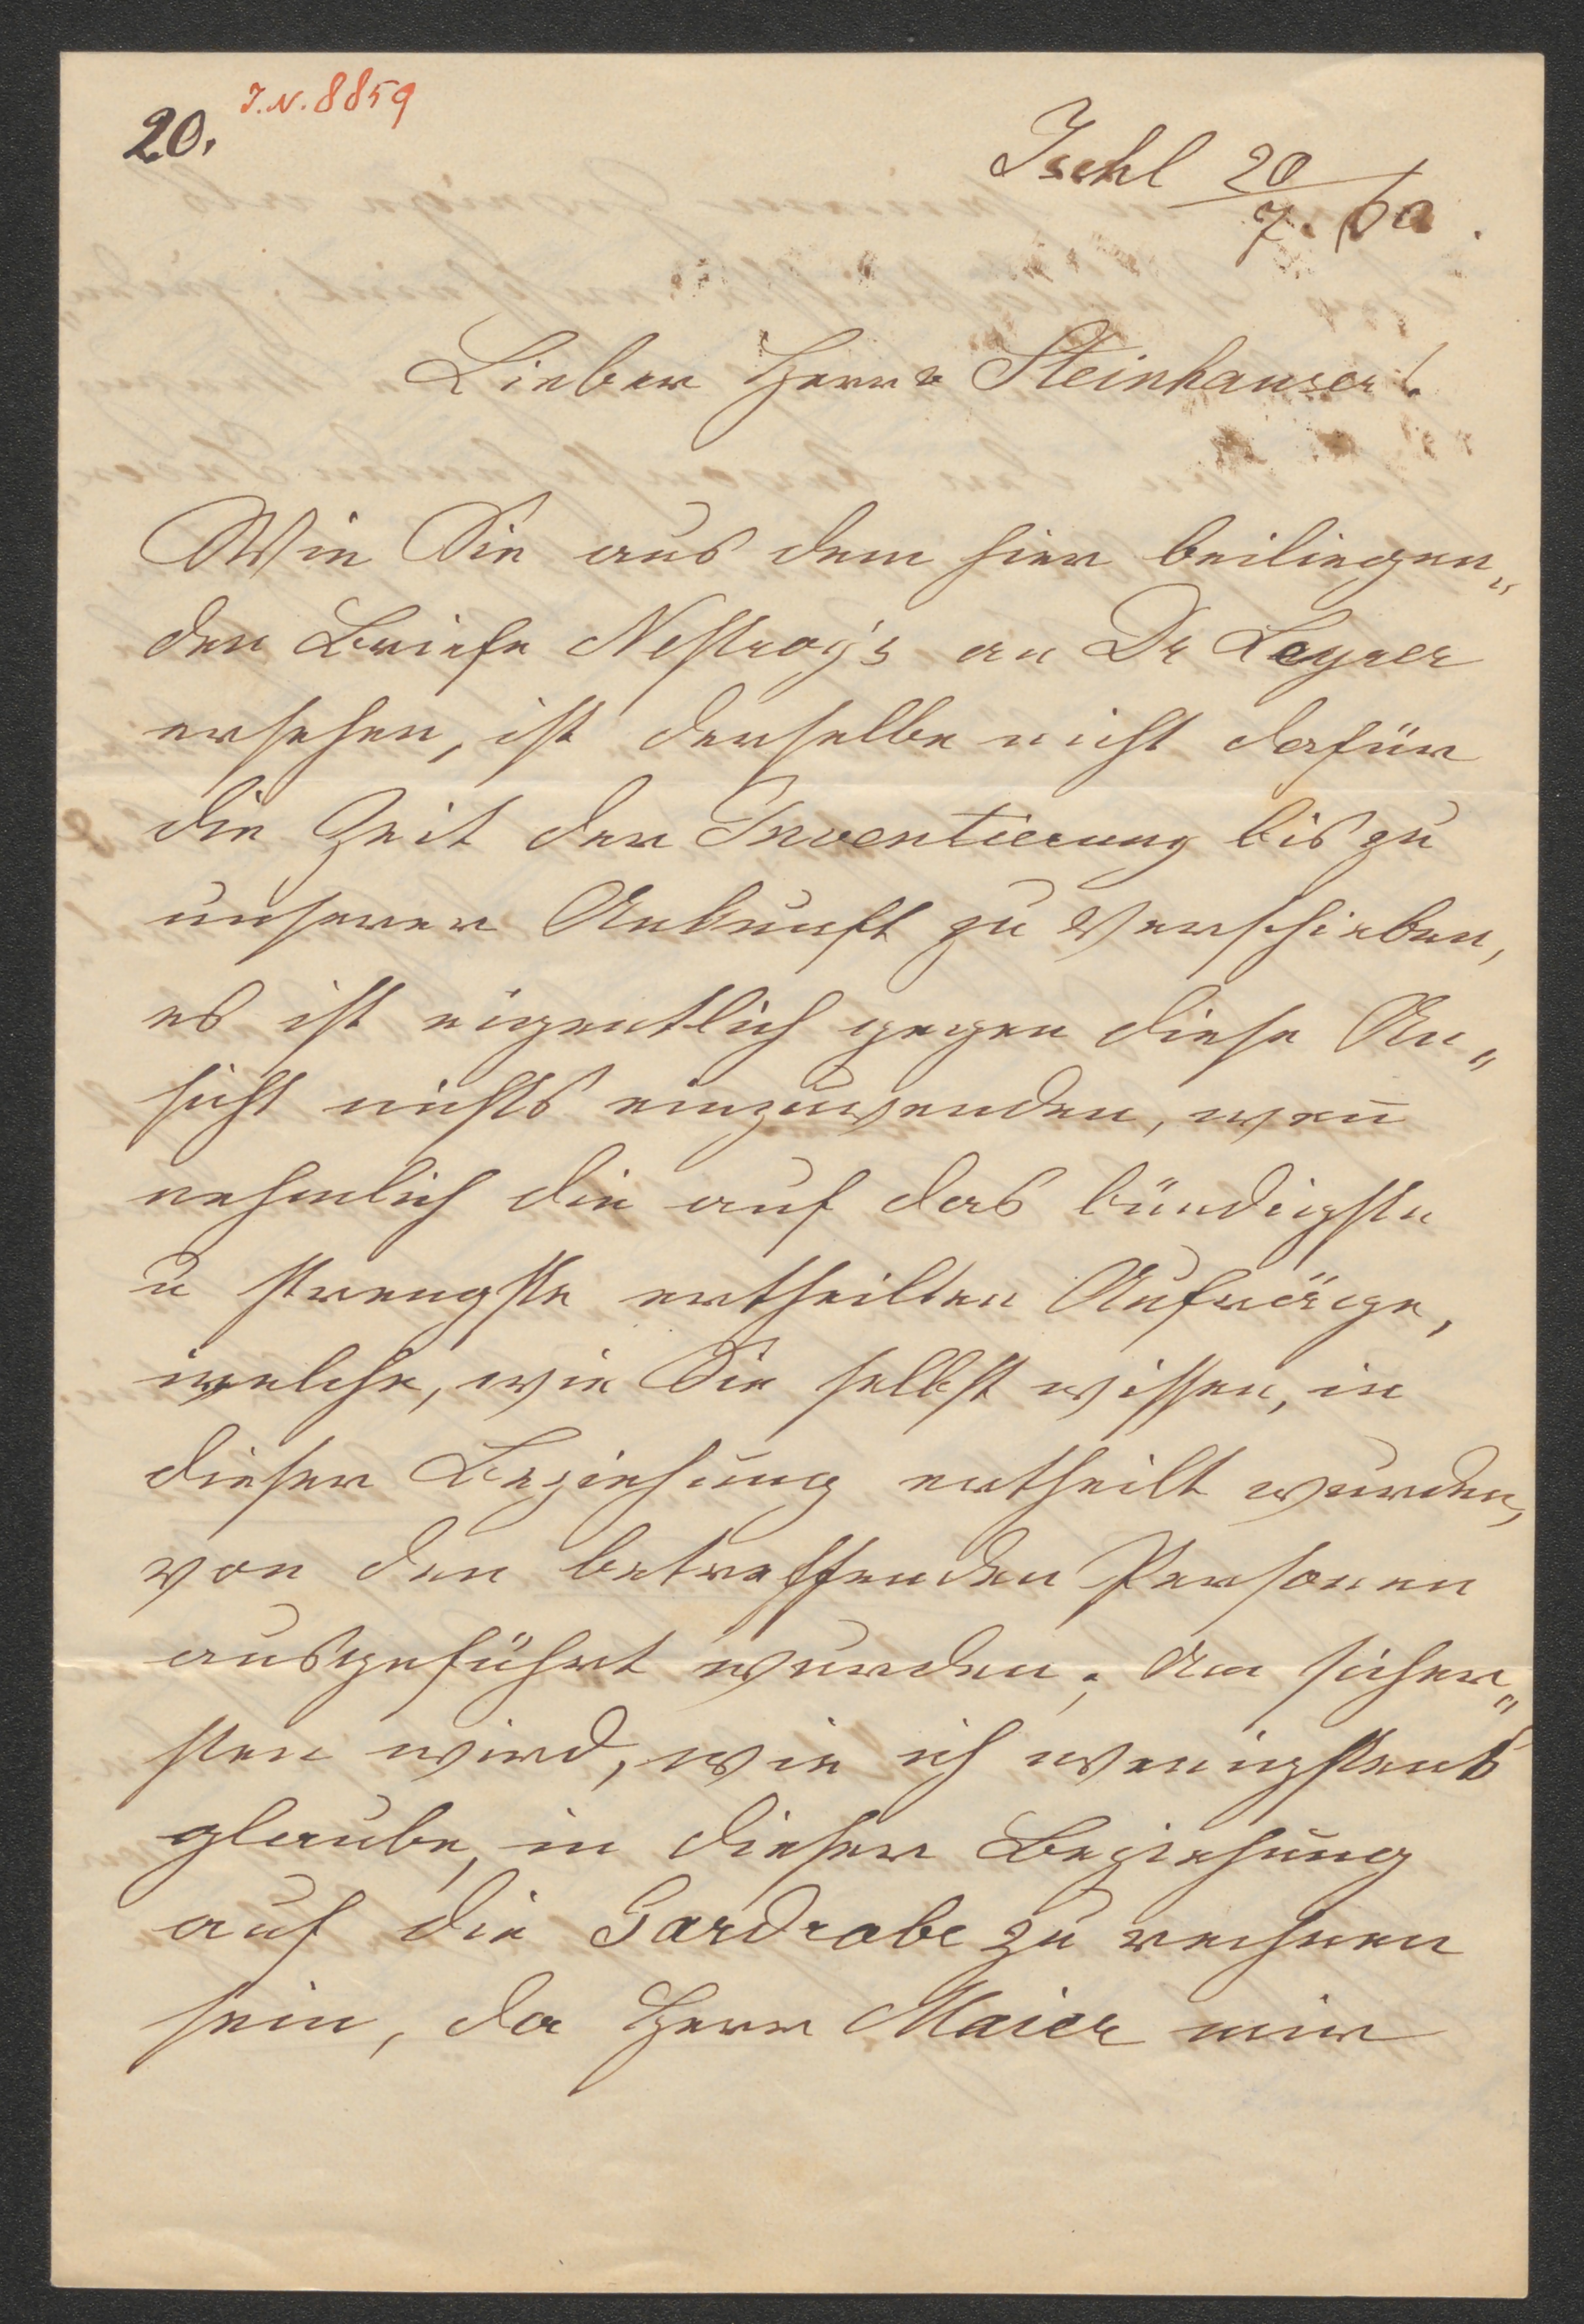 20. I.N. 8859
Ischl 20/7. 60.
Lieber Herr v Steinhauser!
Wie Sie aus dem hier beiliegen„
den Briefe Nestroy's an Dr Leyrer
ersehen, ist derselbe nicht dafür
die Zeit der Inventierung bis zu
unserer Ankunft zu verschieben,
es ist eigentlich gegen diese An„
sicht nichts einzuwenden, wen̄
nehmlich die auf das bündigste
u strengste ertheilten Aufräge,
welche, wie Sie selbst wissen, in
dieser Beziehung ertheilt wurden,
von den betreffenden Personen
ausgeführt wurden; Am sicher„
sten wird, wie ich wenigstens
glaube, in dieser Beziehung
auf die Gardrobe zu rechnen
sein, da Herr Maier mir